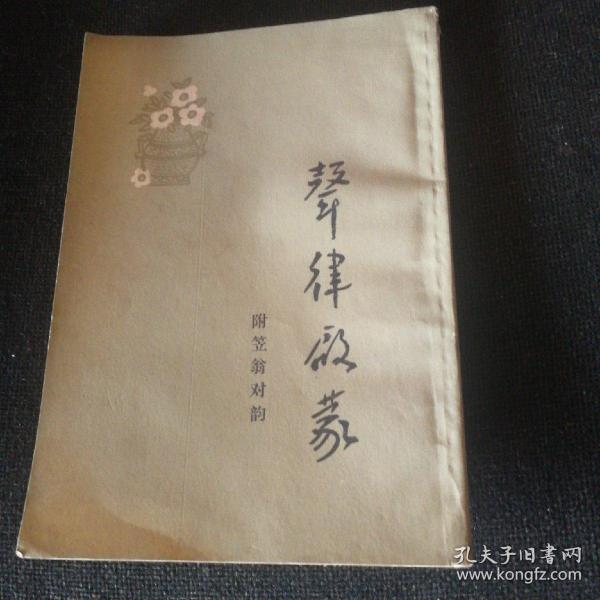 聲律啟蒙
附笠翁对韵
孔夫子旧书网
www.kongfz.com